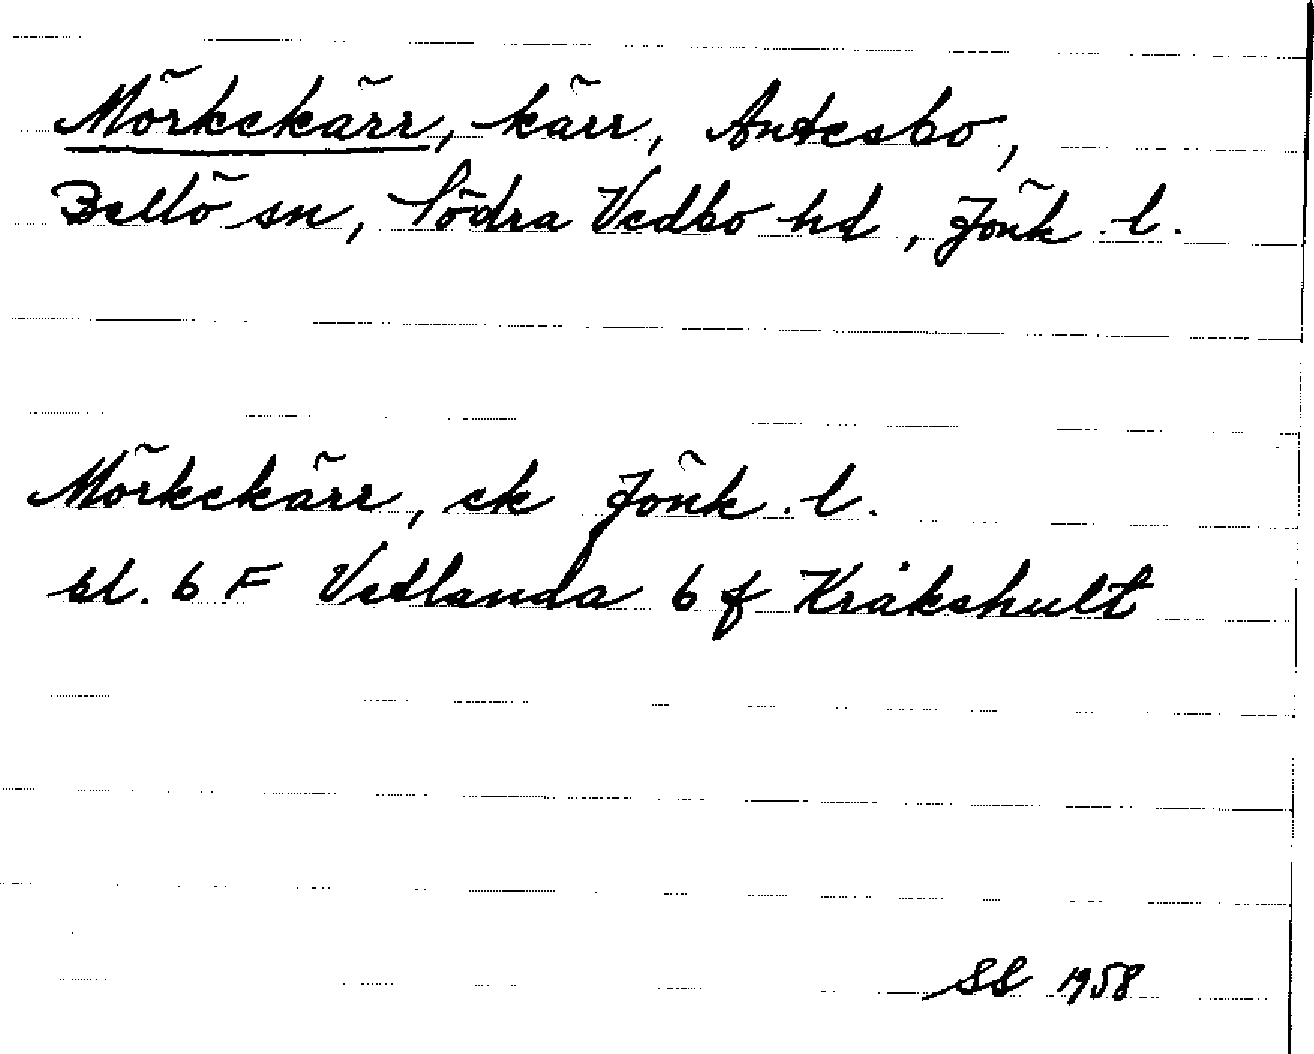 Mörkekärr, kärr, Antesbo,
Bellö sn, Södra Vedbo hd, Jönk. l.
Mörkekärr, ek Jönk. l.
bl. 6 F Vetlanda 6 f Kråkshult
SS 1958